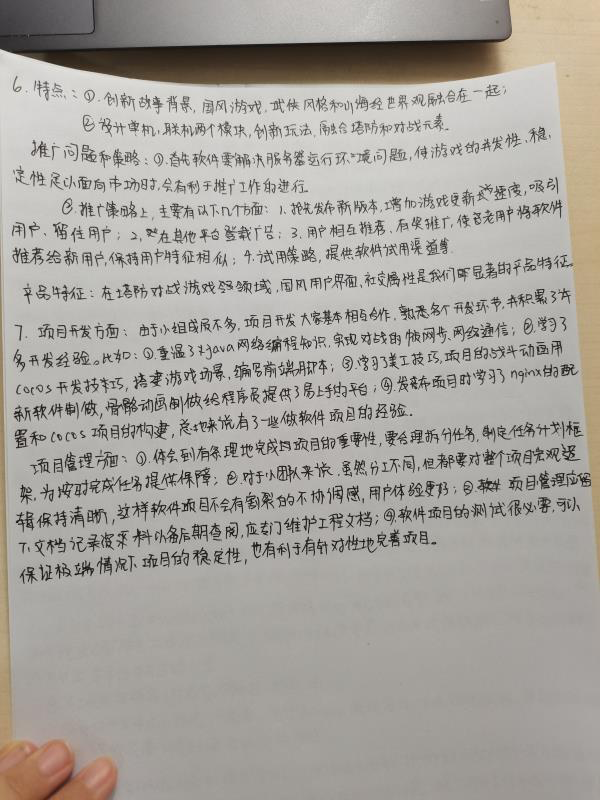 6. 特点：①. 创新故事背景，国风游戏，武侠风格和山海经世界观融合在一起；
② 设计单机、联机两个模块，创新玩法，融合塔防和对战元素。
推广问题和策略：①. 首先软件要解决服务器运行环境问题，使游戏的并发性、稳
定性足以面向市场时，会有利于推广工作的进行。
②. 推广策略上，主要有以下几个方面：1. 抢先发布新版本，增加游戏更新速度，吸引
用户、留住用户；2. 在其他平台登载广告；3. 用户相互推荐、有奖推广，使老用户将软件
推荐给新用户，保持用户特征相似；4. 试用策略，提供软件试用渠道等.
产品特征：在塔防对战游戏领域，国风用户界面，社交属性是我们明显著的产品特征。
7. 项目开发方面：由于小组成员不多，项目开发大家基本相互合作，熟悉各个开发环节，并积累了许
多开发经验。比如：①. 重温了对java网络编程知识，实现对战的帧同步、网络通信；②. 学习了
cocos开发技巧，搭建游戏场景，编写前端脚本；③. 学习了美工技巧，项目的战斗动画用
新软件制做，骨骼动画制做给程序员提供了易上手的平台；④. 发布项目时学习了nginx的配
置和cocos项目的构建，总地来说有了一些做软件项目的经验。
项目管理方面：①. 体会到有条理地完成项目的重要性，要合理拆分任务，制定任务计划框
架，为按时完成任务提供保障；②. 对于小团队来说，虽然分工不同，但都要对整个项目宏观逻
辑保持清晰，这样软件项目不会有割裂的不协调感，用户体验更好；③. 项目管理应留
下文档记录资料以备后期查阅，应专门维护工程文档；④. 软件项目的测试很必要，可以
保证极端情况下项目的稳定性，也有利于有针对性地完善项目。